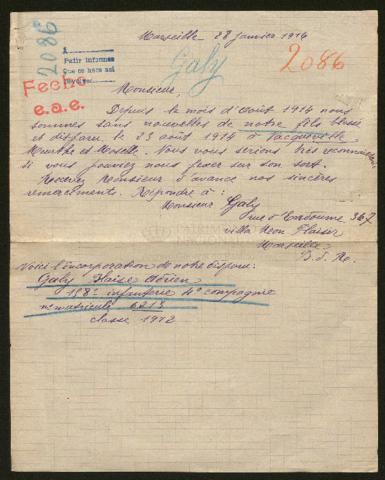 Marseille - 28 janvier 1914
2086
Galy
2086
Pedir informes
Fecho
e.a.e.
Monsieur,
Depuis le mois d'Août 1914 nous
sommes sans nouvelles de notre fils blessé
et disparu le 23 août 1914 à
Meurthe et Moselle. Nous vous serions très reconnaissants
si vous pouviez nous fixer sur son sort.
Recevez Monsieur d'avance nos sincères
remerciements. Répondre à :
Monsieur Galy
rue d'Endoume 367
villa Mon Plaisir
Marseille
B. d. R.
Voici l'incorporation de notre disparu :
Galy Blaise Adrien
158e infanterie 4e compagnie
n° matricule 6213
classe 1912